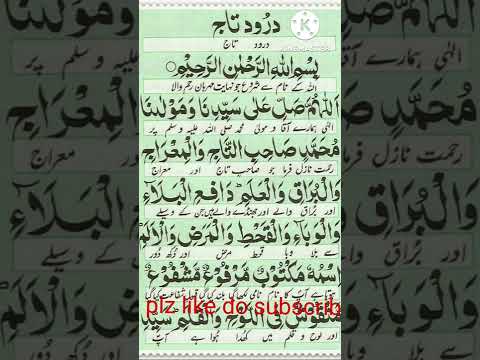 درود تاج
درود تاج
بِسْمِ اللّٰهِ الرَّحْمٰنِ الرَّحِيْمِ
اللہ کے نام سے شروع جو نہایت مہربان رحم والا
اَللّٰهُمَّ صَلِّ عَلٰى سَيِّدِنَا وَمَوْلٰنَا
الٰہی ہمارے آقا و مولیٰ محمد صلی اللہ علیہ وسلم پر
مُحَمَّدٍ صَاحِبِ التَّاجِ وَالْمِعْرَاجِ
رحمت نازل فرما جو صاحب تاج اور معراج
وَالْبُرَاقِ وَالْعَلَمِ دَافِعِ الْبَلَاءِ
اور براق والے اور جھنڈے والے ہیں جن کے وسیلے
وَالْوَبَاءِ وَالْقَحْطِ وَالْمَرَضِ وَالْاَلَمِ
سے بلا وبا قحط مرض اور دکھ دور
اِسْمُهٗ مَكْتُوْبٌ مَرْفُوْعٌ مَشْفُوْعٌ
plz like do subscrib
مَنْقُوْشٌ فِى اللَّوْحِ وَالْقَلَمِ سَيِّدِ
اور لوح و قلم میں کھدا ہوا ہے آپ